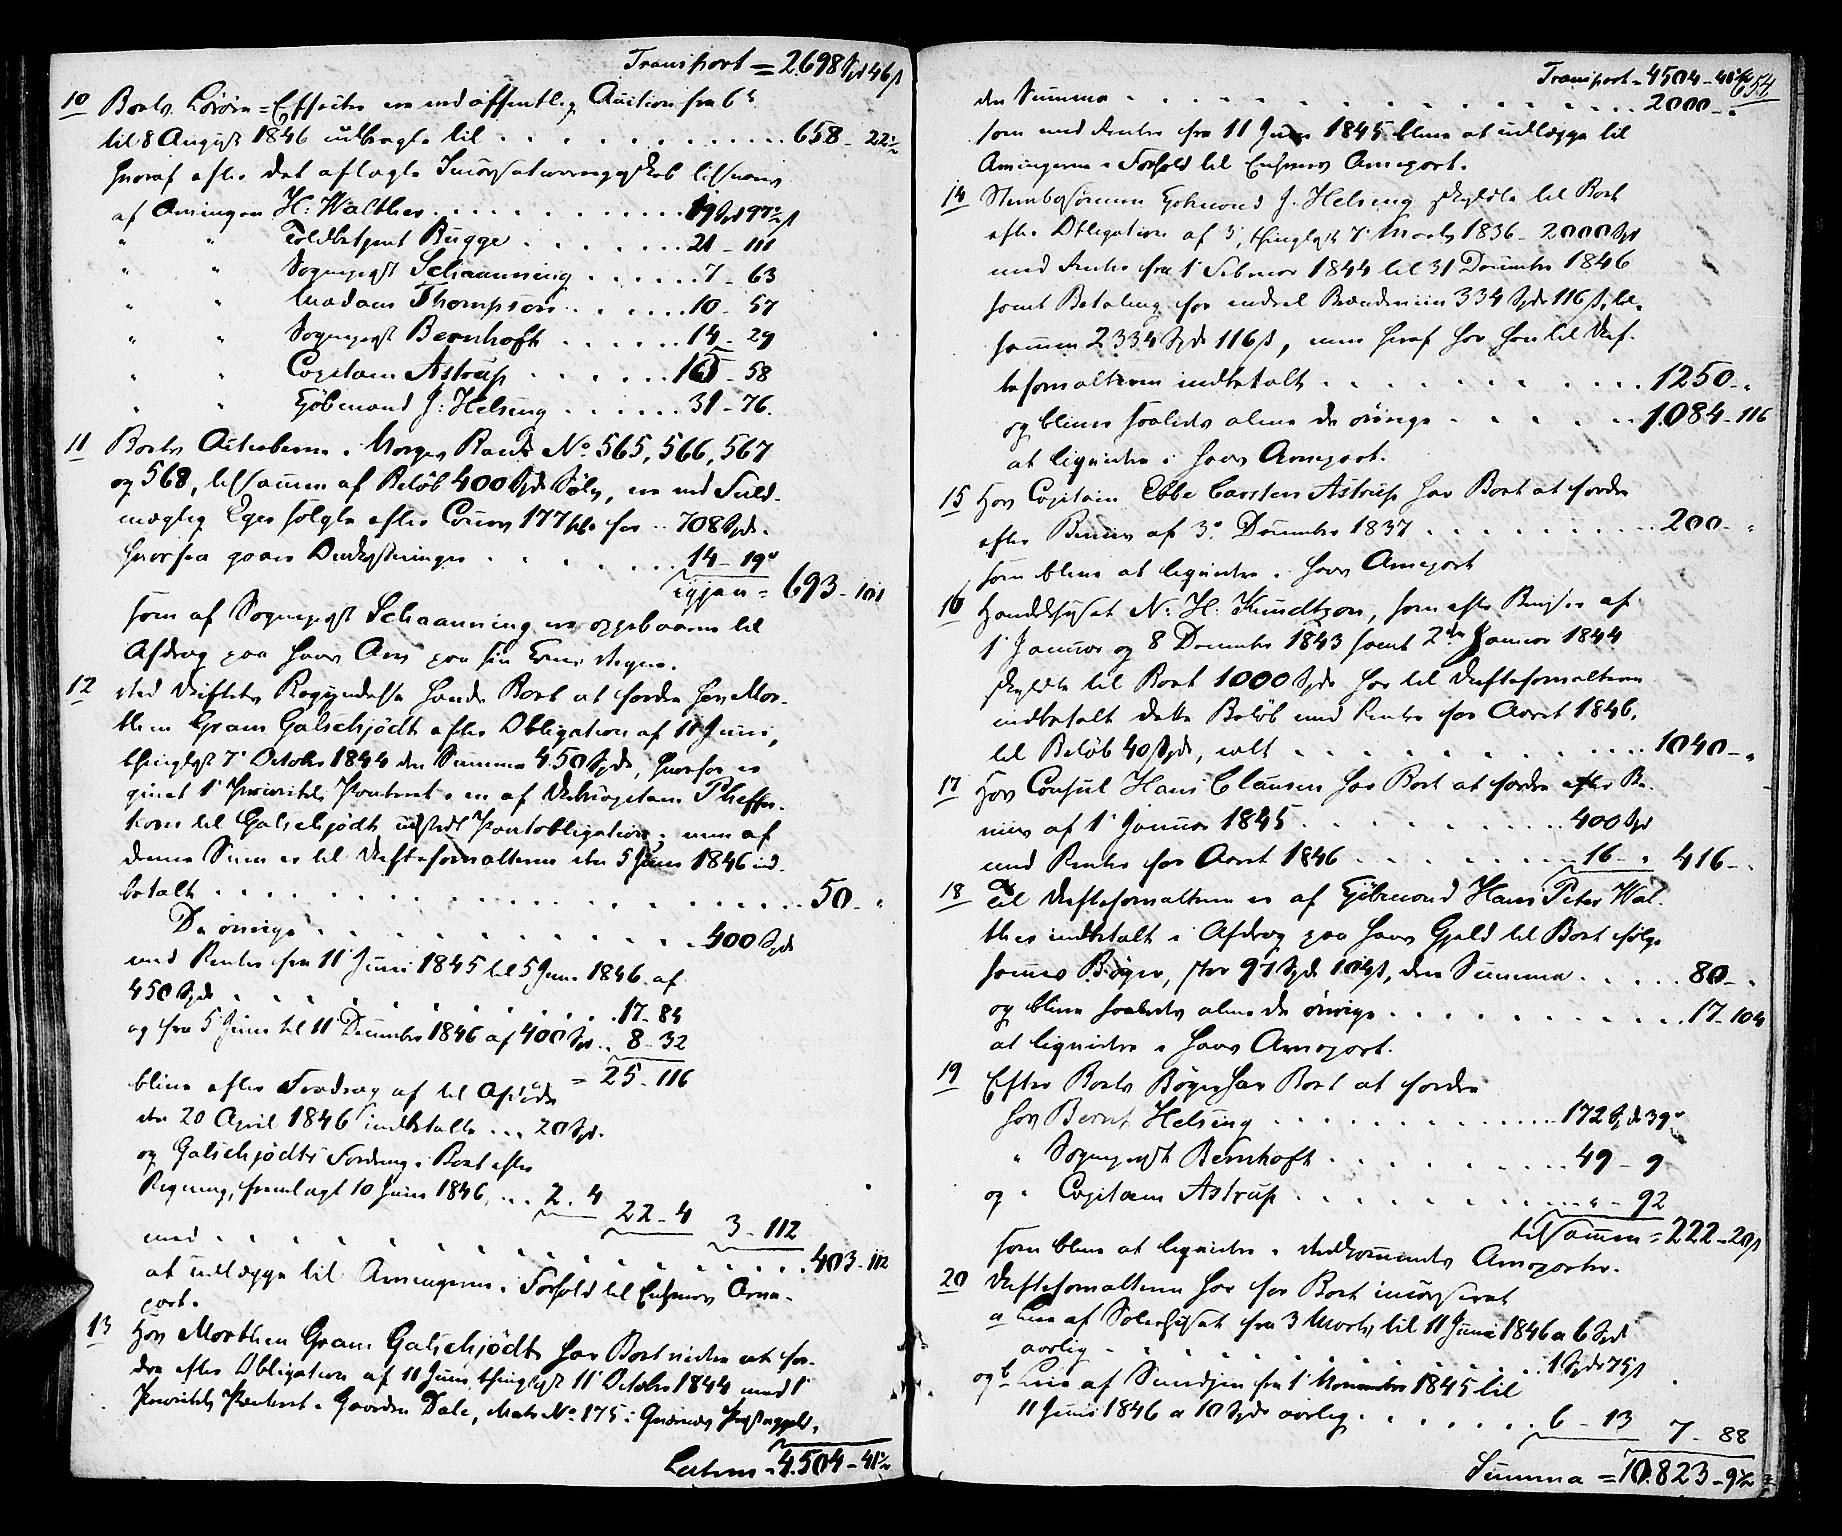 Transport = 2698 Spd 46 s
10 Boets Løsøre-Effecter ere ved offentlig Auction fra 6te
til 8 August 1846 udbragte til . . . 658 - 22½
hvoraf efter det aflagte Incassationsregnskab tilsvares
af Arvingen H: Walther . . . 19 Spd 97½ s
" " Toldbetjent Bugge . . . 21 - 111
" " Sogneprest Schaanning . . . 7 - 63
" " Madam Thompson . . . 10 - 57
" " Sogneprest Bernhoft . . . 14 - 29
" " Capitain Astrup . . . 165 - 58
" " Kjøbmand J: Helsing . . . 31 - 76.
11 Boets Actiebreve i Norges Bank No 565, 566, 567
og 568, tilsammen af Beløb 400 Spd Sølv, ere ved Fuld-
mægtig Eger solgte efter Cours 177 for . . 708 Spd.
hvorfra gaaer Omkostninger . . . 14 - 19
igjen = 693 - 101
som af Sogneprest Schaanning ere oppebaarne til
Afdrag paa hans Arv paa sin Kones Vegne.
12 Ved Skiftets Begyndelse havde Boet at fordre hos Mor-
then Gram Galschjødt efter Obligation af 11 Juni,
thinglyst 7 October 1844 den Summa 450 Spd, hvorfor er
givet 1 Prioritets Panteret i en af Skibscapitain Pheiffer
til Galschjødt udstedt Pantobligation; men af
denne Sum er til Skifteforvalteren den 5 Juni 1846 ind-
betalt . . . 50 - "
De øvrige . . . 400 Spd
med Renter fra 11 Juni 1845 til 5 Juni 1846 af
450 Spd . . . 17 - 84
og fra 5 Juni til 11 December 1846 af 400 Spd . . 8 - 32
= 25 - 116
blive efter Fradrag af til
den 20 April 1846 indbetalte . . . 20 Spd.
og Galschjødts Fordring i Boet efter
Regning, fremlagt 10 Juni 1846, . . . 2 - 4
22 - 4 3 - 112
med . . . 403 - 112
at udlægge til Arvingerne i Forhold til Enhvers Arve-
port.
13 Hos Morthen Gram Galschjødt har Boet videre at for-
dre efter Obligation af 11 Juni, thinglyst 11 October 1844 med 1
Prioritets Panteret i Gaarden Dale, Matr No 175 i Præstegjeld,
Latus = 4.504 - 41½
Transport - 4504 - 41½
654
den Summa . . . 2000 - "
som med Renter fra 11 Juni 1845 blive at udlægge til
Arvingerne i Forhold til Enhvers Arveport.
14 Stervbosønnen Kjøbmand J. Helsing skyldte til Boet
efter Obligation af 3, thinglyst 7 Marts 1836 - 2000 Spd
med Renter fra 1 Februar 1844 til 31 December 1846
samt Betaling for endeel Brændeviin 334 Spd 116 s, til-
sammen 2334 Spd 116 s, men heraf har han til Skif-
teforvalteren indbetalt . . . 1250 - "
og blive saaledes alene de øvrige . . . 1084 - 116
at liqvidere i hans Arveport.
15 Hos Capitain Ebbe Carsten Astrup har Boet at fordre
efter Beviis af 3 December 1837 . . . 200 - "
som blive at liqvidere i hans Arveport
16 Handelshuset N: H. Knudtzon, som efter Beviser af
1 Januar og 8 December 1843 samt 2den Januar 1844
skyldte til Boet 1000 Spd har til Skifteforvalteren
indbetalt dette Beløb med Renter for Aaret 1846.
til Beløb 40 Spd, ialt . . . 1040 - "
17 Hos Consul Hans Clausen har Boet at fordre efter Be-
viis af 1 Januar 1845 . . . 400 Spd
med Renter for Aaret 1846 . . . 16 - " 416 - "
18 Til Skifteforvalteren er af Kjøbmand Hans Peter Wal-
ther indbetalt i Afdrag paa hans Gjeld til Boet ifølge
sammes Bøger, stor 97 Spd 104 s, den Summa . . . 80 - "
og blive saaledes alene de øvrige . . . 17 - 104
at liqvidere i hans Arveport.
19 Efter Boets Bøger har Boet at fordre
hos Bernt Helsing . . . 172 Spd 39
" Sogneprest Bernhoft . . . 49 - 9
og " Capitain Astrup . . . " - 92
tilsammen = 222 - 20 s
som blive at liqvidere i Vedkommendes Arveporter.
20 Skifteforvalteren har for Boet incasseret
a Leie af fra 3 Marts til 11 Juni 1846 a 6 Spd
aarlig . . . 1 Spd 75 s
og b Leie af fra 1 November 1845 til
11 Juni 1846 a 10 Spd aarlig . . . 6 - 13 7 - 88
Summa = 10.823 - 9½